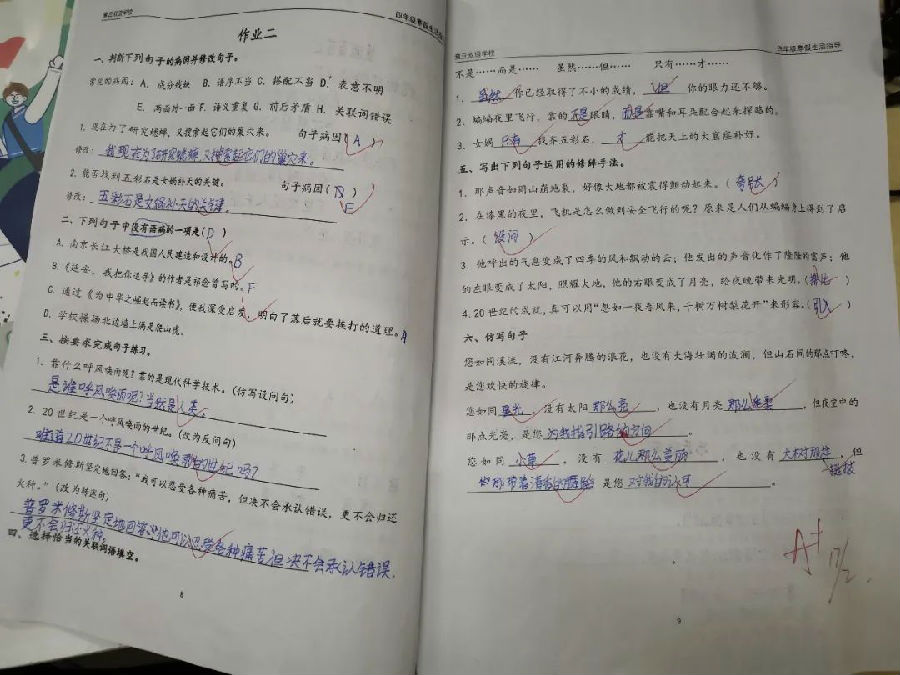 四年级寒假生活指导
作业二
一、判断下列句子的病因并修改句子。
常见的病因：A. 成分残缺 B. 语序不当 C. 搭配不当 D. 表意不明
E. 两面对一面 F. 语义重复 G. 前后矛盾 H. 关联词错误
1. 现在为了研究蟋蟀，又搜索起它们的巢穴来。 句子病因（A）
修改：我现在为了研究蟋蟀，又搜索起它们的巢穴来。
2. 能否找到五彩石是女娲补天的关键。 句子病因（ ）
E
修改：五彩石是女娲补天的关键。
二、下列句子中没有语病的一项是（D）
A. 南京长江大桥是我国人民建造和设计的。B
B. 《延安，我把你追寻》的作者是祁念曾写的。F
C. 通过《为中华之崛起而读书》，使我深受启发，明白了落后就要挨打的道理。A
D. 学校操场北边墙上满是爬山虎。
三、按要求完成句子练习。
1. 靠什么呼风唤雨呢？靠的是现代科学技术。（仿写设问句）
是谁呼风唤雨呢？当然是人类。
2. 20 世纪是一个呼风唤雨的世纪。（改为反问句）
难道20世纪不是一个呼风唤雨的世纪吗？
3. 普罗米修斯坚定地回答：“我可以忍受各种痛苦，但决不会承认错误，更不会归还
火种。”（改为转述句）
普罗米修斯坚定地回答，他可以忍受各种痛苦，但决不会承认错误，
更不会归还火种。
四、选择恰当的关联词语填空。
8
四年级寒假生活指导
不是……而是…… 虽然……但…… 只有……才……
1. 虽然 你已经取得了不小的成绩，但 你的眼力还不够。
2. 蝙蝠夜里飞行，靠的不是眼睛，而是靠嘴和耳朵配合起来探路的。
3. 女娲 只有 找齐五彩石， 才 能把天上的大窟窿补好。
五、写出下列句子运用的修辞手法。
1. 那声音如同山崩地裂，好像大地都被震得颤动起来。（夸张）
2. 在漆黑的夜里，飞机是怎么做到安全飞行的呢？原来是人们从蝙蝠身上得到了启
示。（设问）
3. 他呼出的气息变成了四季的风和飘动的云；他发出的声音化作了隆隆的雷声；他
的左眼变成了太阳，照耀大地，他的右眼变成了月亮，给夜晚带来光明。（排比）
4. 20 世纪的成就，真可以用“忽如一夜春风来，千树万树梨花开”来形容。（引入）
六、仿写句子
您如同溪流，没有江河奔腾的浪花，也没有大海壮阔的波澜，但山石间的那点叮咚，
是您欢快的旋律。
您如同 星光 ，没有太阳 那么亮 ，也没有月亮 那么 ，但夜空中的
那点光亮，是您 为我指引路的方向 。
您如同 小草 ，没有 花儿那么美丽 ，也没有 大树 ，但
是您 对我的认可 。
A+
17/2
9